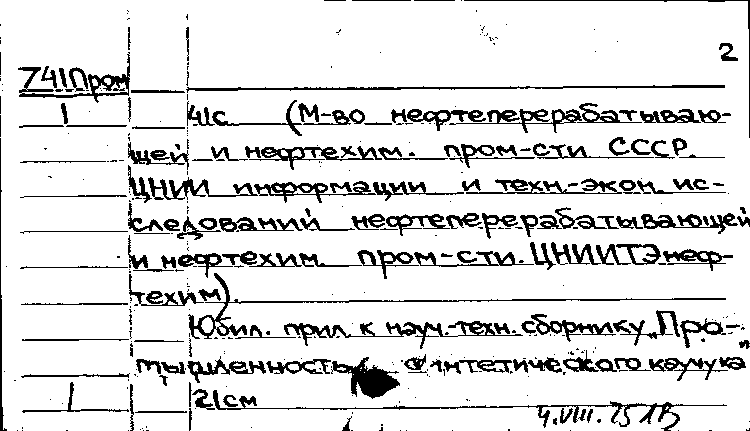 2
741Пром
1 41с. (М-во нефтеперерабатываю-
щей и нефтехим. пром-сти СССР.
ЦНИИ информации и техн.-экон. ис-
следований нефтеперерабатывающей
и нефтехим. пром-сти. ЦНИИТЭнеф-
техим).
Юбил. прил. к науч.-техн. сборнику „Про-
мышленность синтетического каучука"
1 21см
4.VIII.75